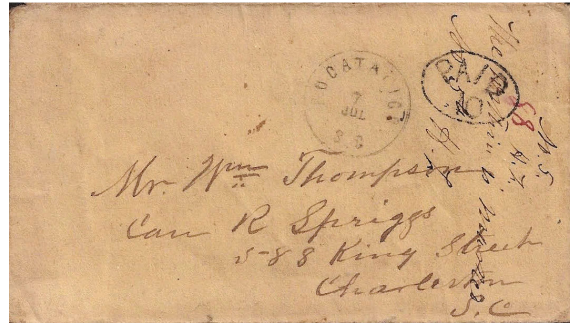 POCATALIGO
7
JUL
S C
PAID
10
Mr. Wm Thompson
Care R Spriggs
588 King Street
Charleston
S. C
88